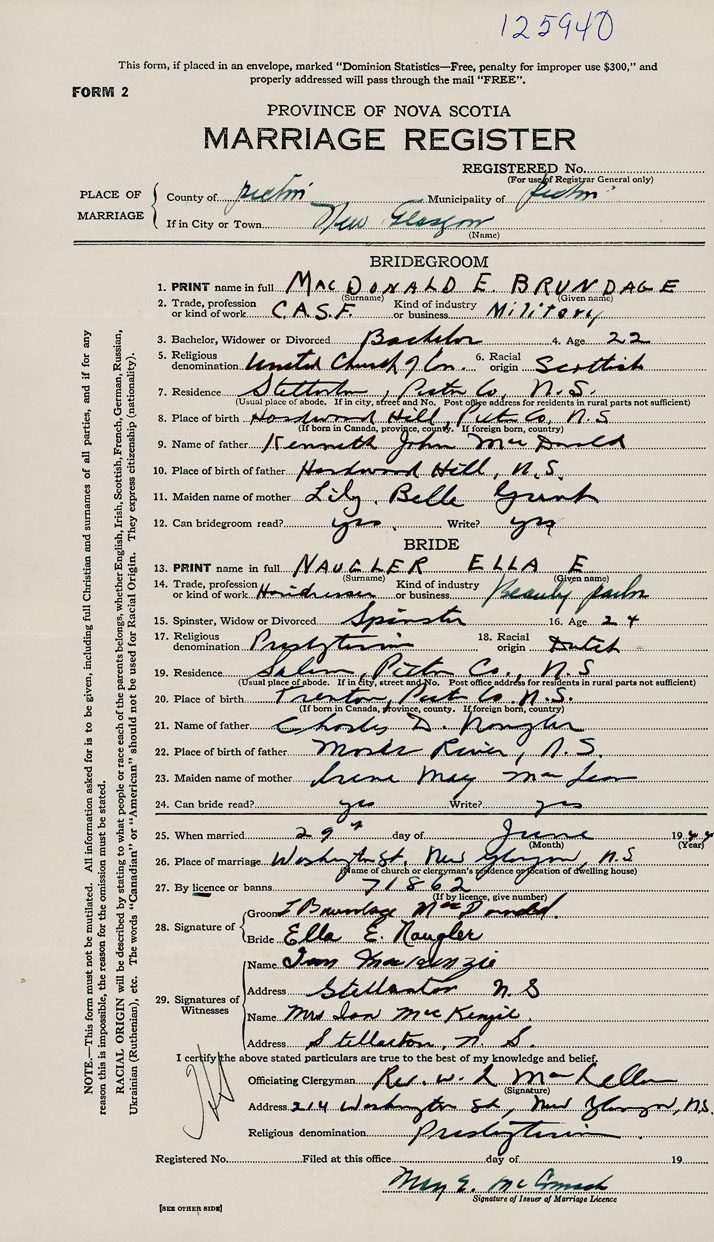 125940
This form, if placed in an envelope, marked "Dominion Statistics—Free, penalty for improper use $300," and
properly addressed will pass through the mail "FREE".
FORM 2
PROVINCE OF NOVA SCOTIA
MARRIAGE REGISTER
REGISTERED No.
(For use of Registrar General only)
PLACE OF MARRIAGE
County of Pictou Municipality of Pictou
If in City or Town New Glasgow
(Name)
BRIDEGROOM
1. PRINT name in full MACDONALD E. BRUNDAGE
(Surname) (Given name)
2. Trade, profession or kind of work C.A.S.F. Kind of industry or business Military
3. Bachelor, Widower or Divorced Bachelor 4. Age 22
5. Religious denomination United Church of Can. 6. Racial origin Scottish
7. Residence Stellarton, Pictou Co, N.S.
(Usual place of abode. If in city, street and No. Post office address for residents in rural parts not sufficient)
8. Place of birth Hardwood Hill, Pict Co, N.S
(If born in Canada, province, county. If foreign born, country)
9. Name of father Kenneth John MacDonald
10. Place of birth of father Hardwood Hill, N.S.
11. Maiden name of mother Lily Belle Grant
12. Can bridegroom read? yes. Write? yes
BRIDE
13. PRINT name in full NAUGLER ELLA E
(Surname) (Given name)
14. Trade, profession or kind of work Hairdresser Kind of industry or business Beauty parlor
15. Spinster, Widow or Divorced Spinster 16. Age 24
17. Religious denomination Presbyterian 18. Racial origin Dutch
19. Residence Salem, Pictou Co., N.S
(Usual place of abode. If in city, street and No. Post office address for residents in rural parts not sufficient)
20. Place of birth Trenton, Pict Co. N.S.
(If born in Canada, province, county. If foreign born, country)
21. Name of father Charles D. Naugler
22. Place of birth of father Mosers River, N.S.
23. Maiden name of mother Irene May MacLean
24. Can bride read? yes Write? yes
25. When married 29th day of June 1944
(Month) (Year)
26. Place of marriage Washington St, New Glasgow, N.S
(Name of church or clergyman's residence or location of dwelling house)
27. By licence or banns 71862
(If by licence, give number)
28. Signature of
Groom E Brundage MacDonald.
Bride Ella E. Naugler
29. Signatures of Witnesses
Name Ian MacKenzie
Address Stellarton N.S
Name Mrs Ian MacKenzie.
Address Stellarton, N. S.
I certify the above stated particulars are true to the best of my knowledge and belief.
Officiating Clergyman Rev. W. L MacLellan
(Signature)
Address 214 Washington St, New Glasgow, N.S.
Religious denomination Presbyterian
Registered No. Filed at this office day of 19
May E. McCormack
Signature of Issuer of Marriage Licence
[SEE OTHER SIDE]
NOTE.—This form must not be mutilated. All information asked for is to be given, including full Christian and surnames of all parties, and if for any
reason this is impossible, the reason for the omission must be stated.
RACIAL ORIGIN will be described by stating to what people or race each of the parents belongs, whether English, Irish, Scottish, French, German, Russian,
Ukrainian (Ruthenian), etc. The words "Canadian" or "American" should not be used for Racial Origin. They express citizenship (nationality).